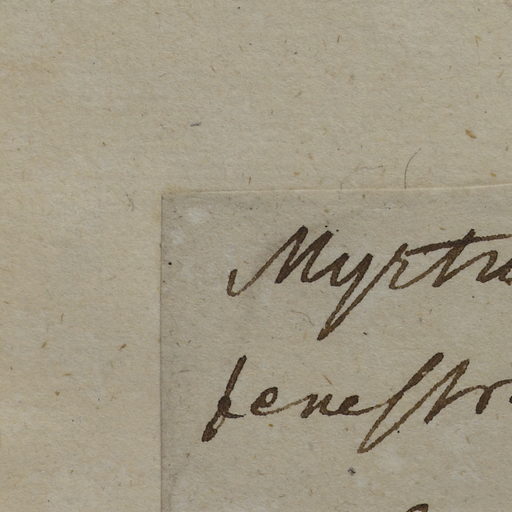 Myrtu
feneſtr